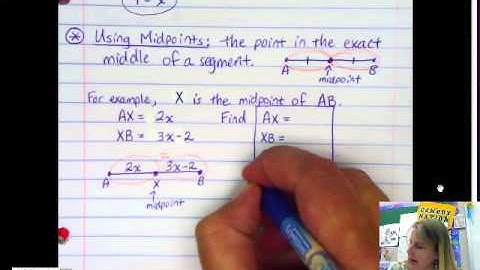 1 = x
* Using Midpoints: the point in the exact
middle of a segment.
A B
midpoint
For example, X is the midpoint of AB.
AX = 2x Find AX =
XB = 3x-2 XB =
2x = 3x-2
A X B
midpoint